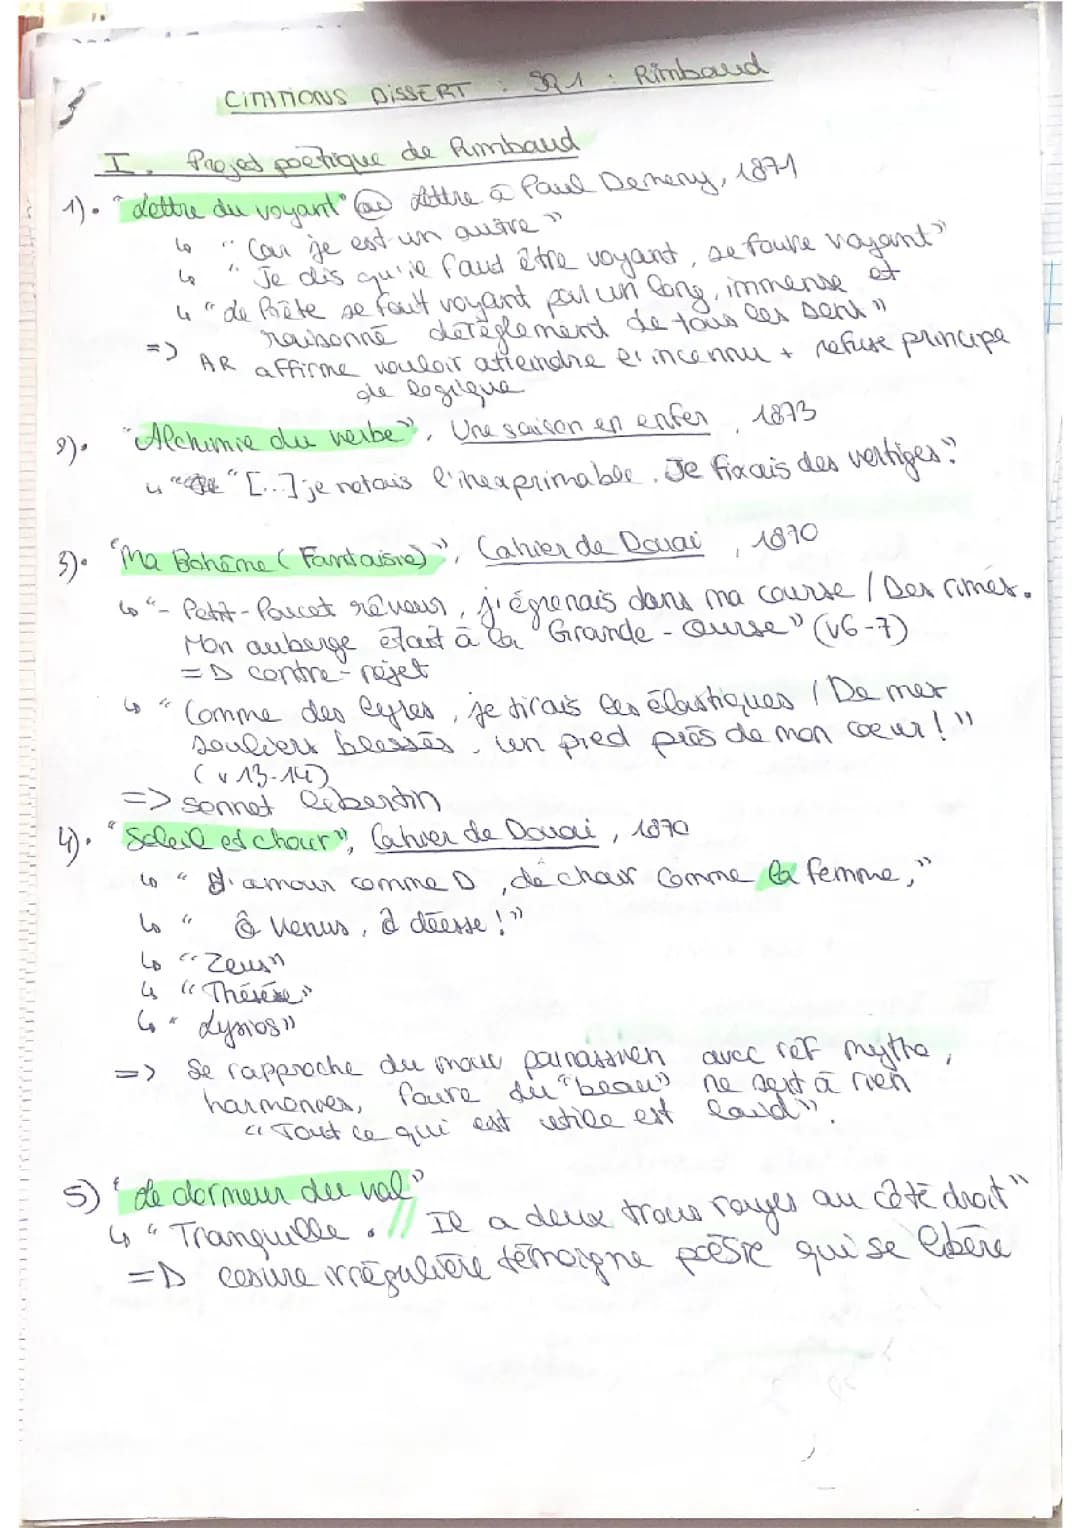 CITATIONS DISSERT : SQ1 : Rimbaud
I. Projet poétique de Rimbaud
1). "Lettre du voyant" ou Lettre à Paul Demeny, 1871
↳ "Car je est un autre"
↳ "Je dis qu'il faut être voyant, se faire voyant"
↳ "Le Poète se fait voyant par un long, immense et
raisonné dérèglement de tous les sens"
=> AR affirme vouloir atteindre l'inconnu + refuse principe
de logique
2). "Alchimie du verbe", Une saison en enfer, 1873
↳ "[...] je notais l'inexprimable. Je fixais des vertiges."
3). "Ma Bohême (Fantaisie)", Cahier de Douai, 1870
↳ "- Petit-Poucet rêveur, j'égrenais dans ma course / Des rimes.
Mon auberge était à la Grande-Ourse" (v6-7)
=> contre-rejet
↳ "Comme des lyres, je tirais les élastiques / De mes
souliers blessés, un pied près de mon coeur!"
(v13-14)
=> sonnet libertin
4). "Soleil et chair", Cahier de Douai, 1870
↳ "d'amour comme D, de chair comme la femme,"
↳ "ô Venus, ô déesse!"
↳ "Zeus"
↳ "Thésée"
↳ "Lysios"
=> Se rapproche du mouv parnassien avec réf mytho,
harmonies, faire du "beau" ne sert à rien
"Tout ce qui est utile est laid".
5) "Le dormeur du val"
↳ "Tranquille. // Il a deux trous rouges au côté droit"
=> césure irrégulière témoigne poésie qui se libère